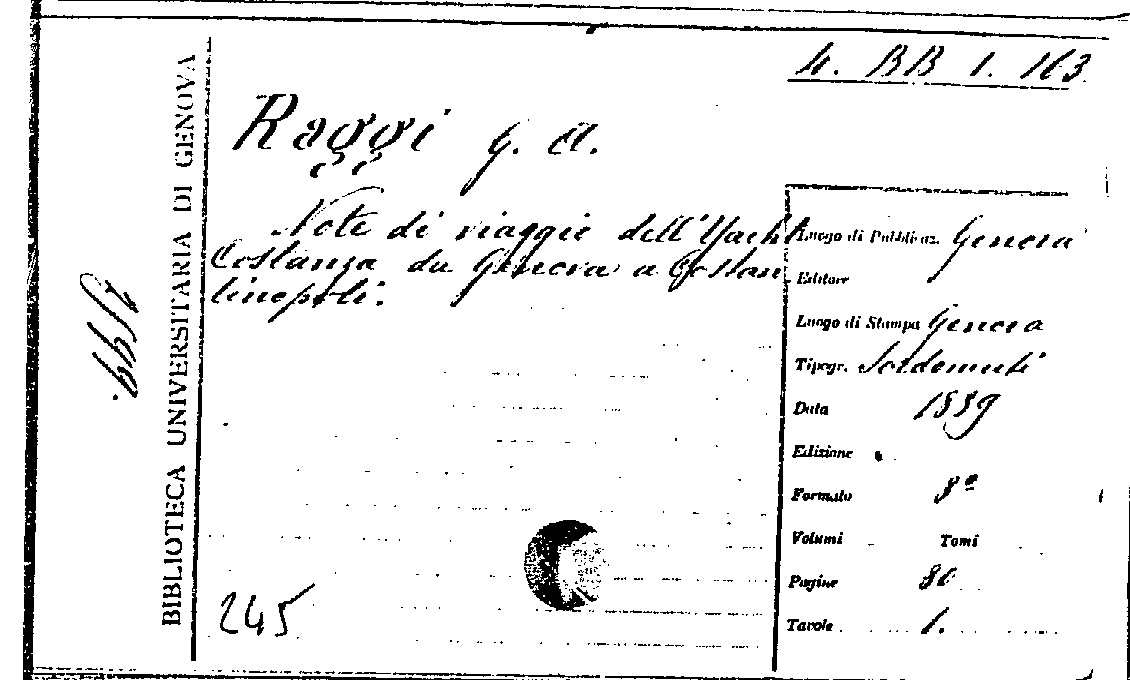 4. BB 1. 163
BIBLIOTECA UNIVERSITARIA DI GENOVA
Raggi G. A.
Note di viaggio dell'Yacht
Costanza da Genova a Costan
tinopoli.
245
Luogo di Pubblicaz. Genova
Editore
Luogo di Stampa Genova
Tipogr. Sordomuti
Data 1889
Edizione
Formato 8º
Volumi Tomi
Pagine 80
Tavole 1.